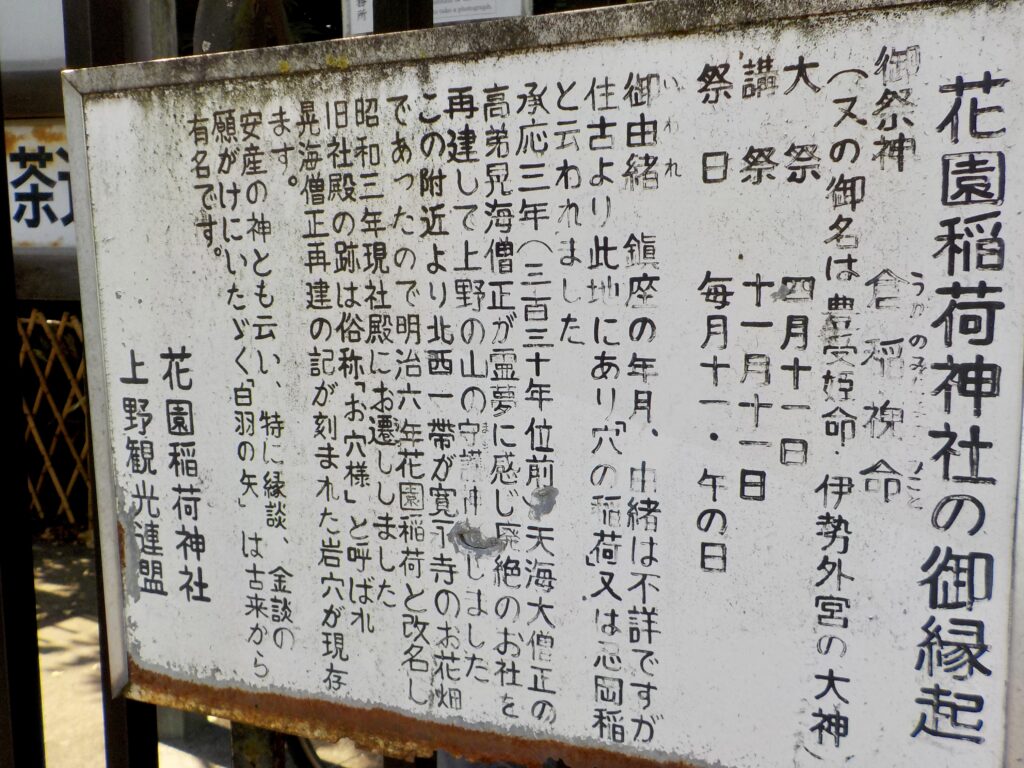 花園稲荷神社の御縁起
御祭神 倉稲魂命
(又の御名は豊受姫命・伊勢外宮の大神)
大祭 四月十一日
講祭 十一月十一日
祭日 毎月十一・午の日
御由緒 鎮座の年月、由緒は不詳ですが
いわれ
住古より此地にあり「穴の稲荷」又は忍岡稲
と云われました
承応三年(三百三十年位前)天海大僧正の
高弟晃海僧正が霊夢に感じ廃絶のお社を
再建して上野の山の守護神しました
この附近より北西一帯が寛永寺のお花畑
であったので明治六年花園稲荷と改名し
昭和三年現社殿にお遷ししました
旧社殿の跡は俗称「お穴様」と呼ばれ
晃海僧正再建の記が刻まれた岩穴が現存
ます。
安産の神とも云い、特に縁談、金談の
願がけにいたゞく「白羽の矢」は古来から
有名です。
花園稲荷神社
上野観光連盟
茶